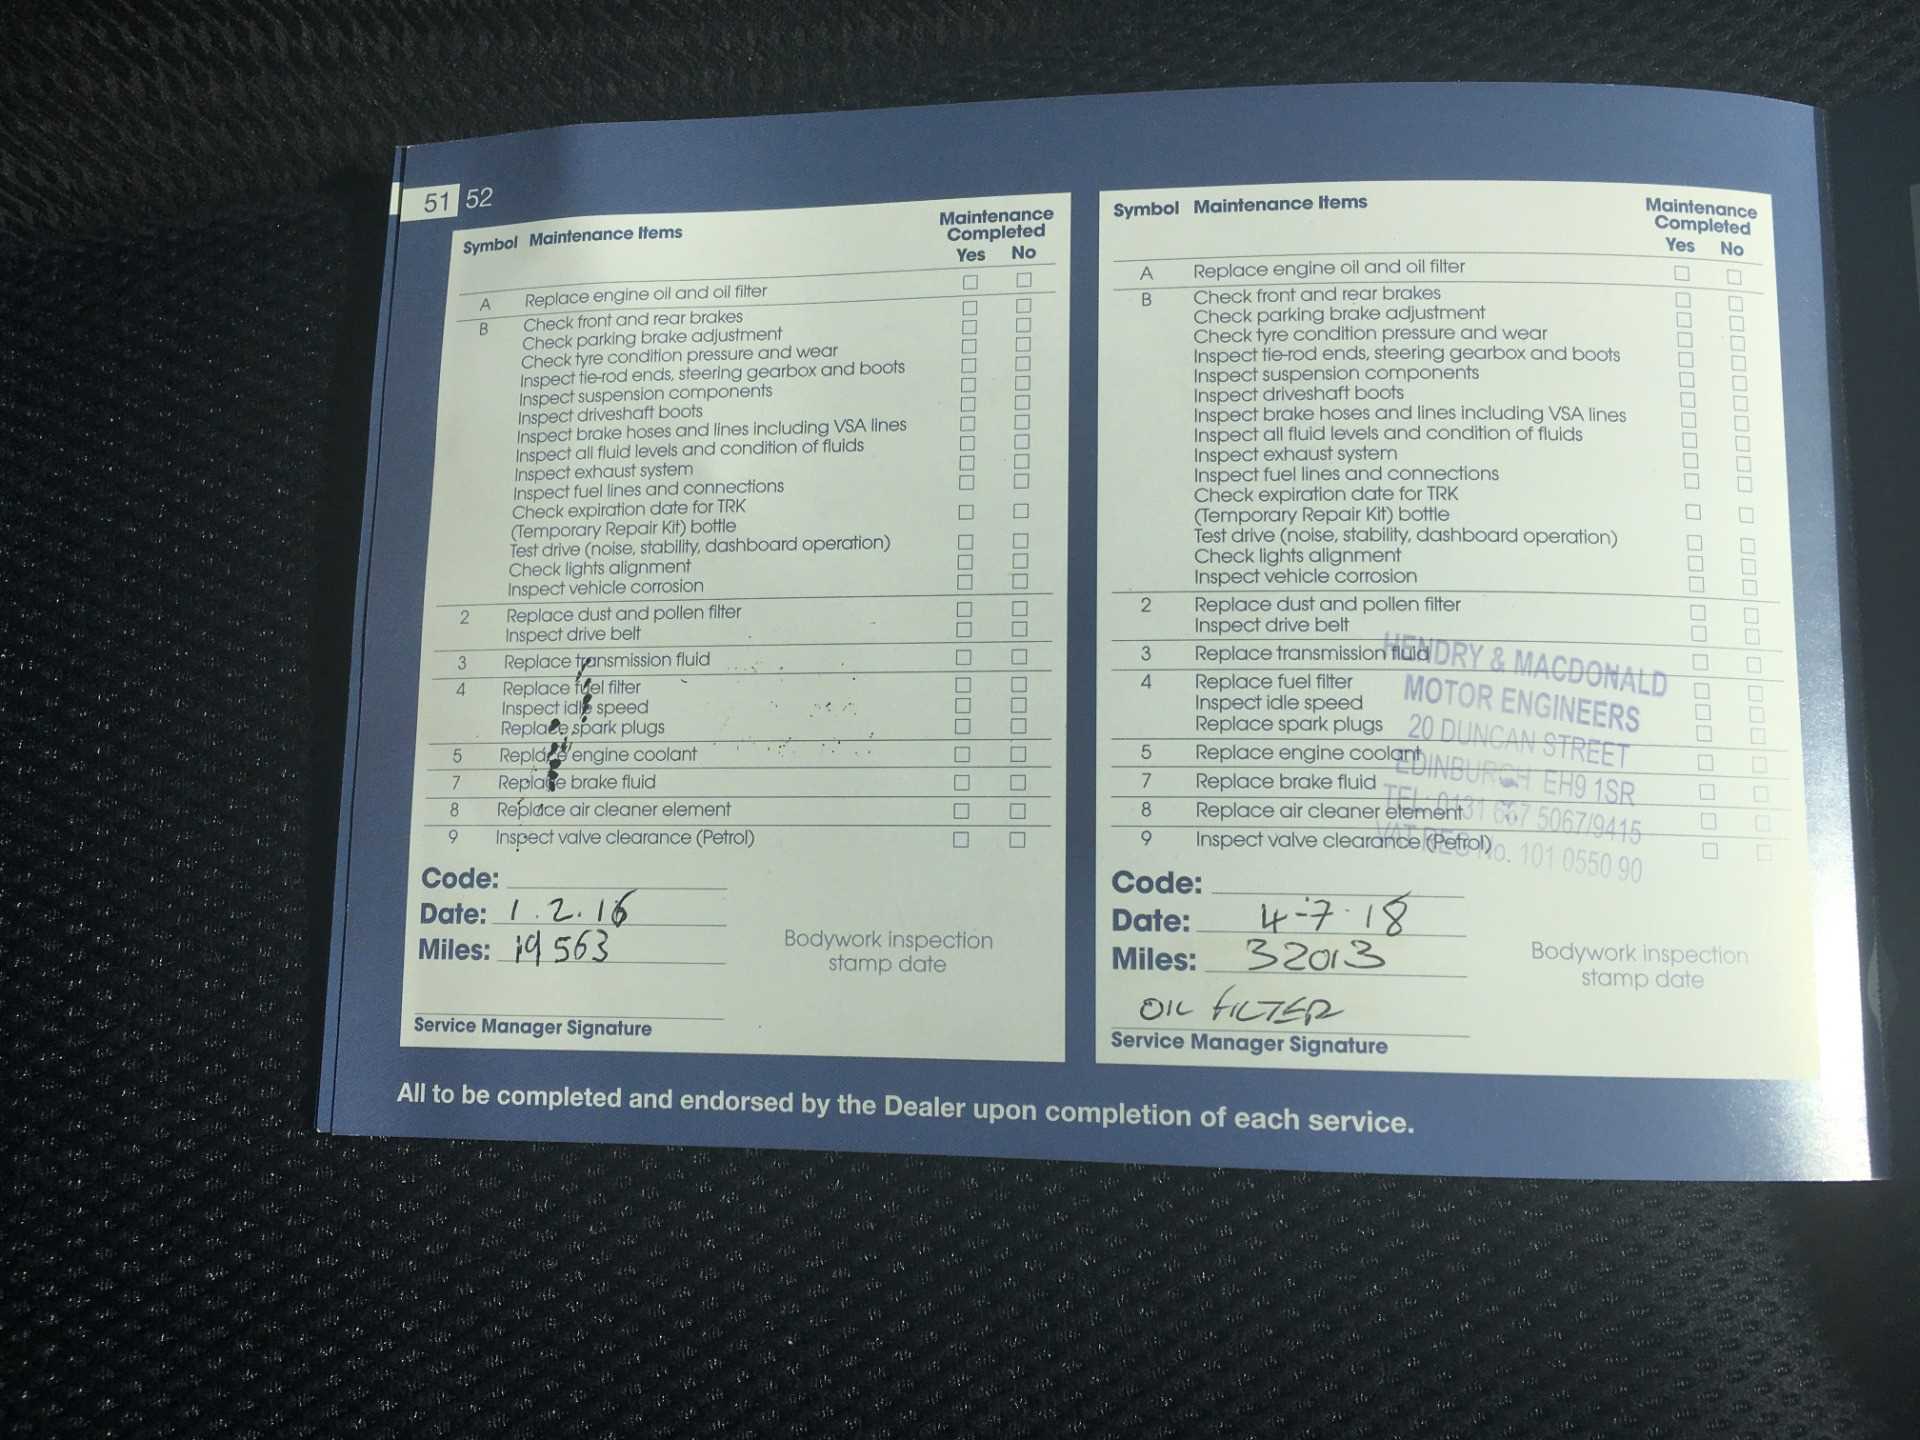 51 52
Symbol Maintenance Items
Maintenance
Completed
Yes No
A Replace engine oil and oil filter
B Check front and rear brakes
Check parking brake adjustment
Check tyre condition pressure and wear
Inspect tie-rod ends, steering gearbox and boots
Inspect suspension components
Inspect driveshaft boots
Inspect brake hoses and lines including VSA lines
Inspect all fluid levels and condition of fluids
Inspect exhaust system
Inspect fuel lines and connections
Check expiration date for TRK
(Temporary Repair Kit) bottle
Test drive (noise, stability, dashboard operation)
Check lights alignment
Inspect vehicle corrosion
2 Replace dust and pollen filter
Inspect drive belt
3 Replace transmission fluid
4 Replace fuel filter
Inspect idle speed
Replace spark plugs
5 Replace engine coolant
7 Replace brake fluid
8 Replace air cleaner element
9 Inspect valve clearance (Petrol)
Code:
Date: 1.2.16
Miles: 19563
Bodywork inspection
stamp date
Service Manager Signature
Symbol Maintenance Items
Maintenance
Completed
Yes No
A Replace engine oil and oil filter
B Check front and rear brakes
Check parking brake adjustment
Check tyre condition pressure and wear
Inspect tie-rod ends, steering gearbox and boots
Inspect suspension components
Inspect driveshaft boots
Inspect brake hoses and lines including VSA lines
Inspect all fluid levels and condition of fluids
Inspect exhaust system
Inspect fuel lines and connections
Check expiration date for TRK
(Temporary Repair Kit) bottle
Test drive (noise, stability, dashboard operation)
Check lights alignment
Inspect vehicle corrosion
2 Replace dust and pollen filter
Inspect drive belt
3 Replace transmission fluid
4 Replace fuel filter
Inspect idle speed
Replace spark plugs
5 Replace engine coolant
7 Replace brake fluid
8 Replace air cleaner element
9 Inspect valve clearance (Petrol)
HENDRY & MACDONALD
MOTOR ENGINEERS
20 DUNCAN STREET
EDINBURGH EH9 1SR
TEL: 0131 667 5067/9415
VAT REG No. 101 0550 90
Code:
Date: 4-7-18
Miles: 32013
OIL FILTER
Bodywork inspection
stamp date
Service Manager Signature
All to be completed and endorsed by the Dealer upon completion of each service.